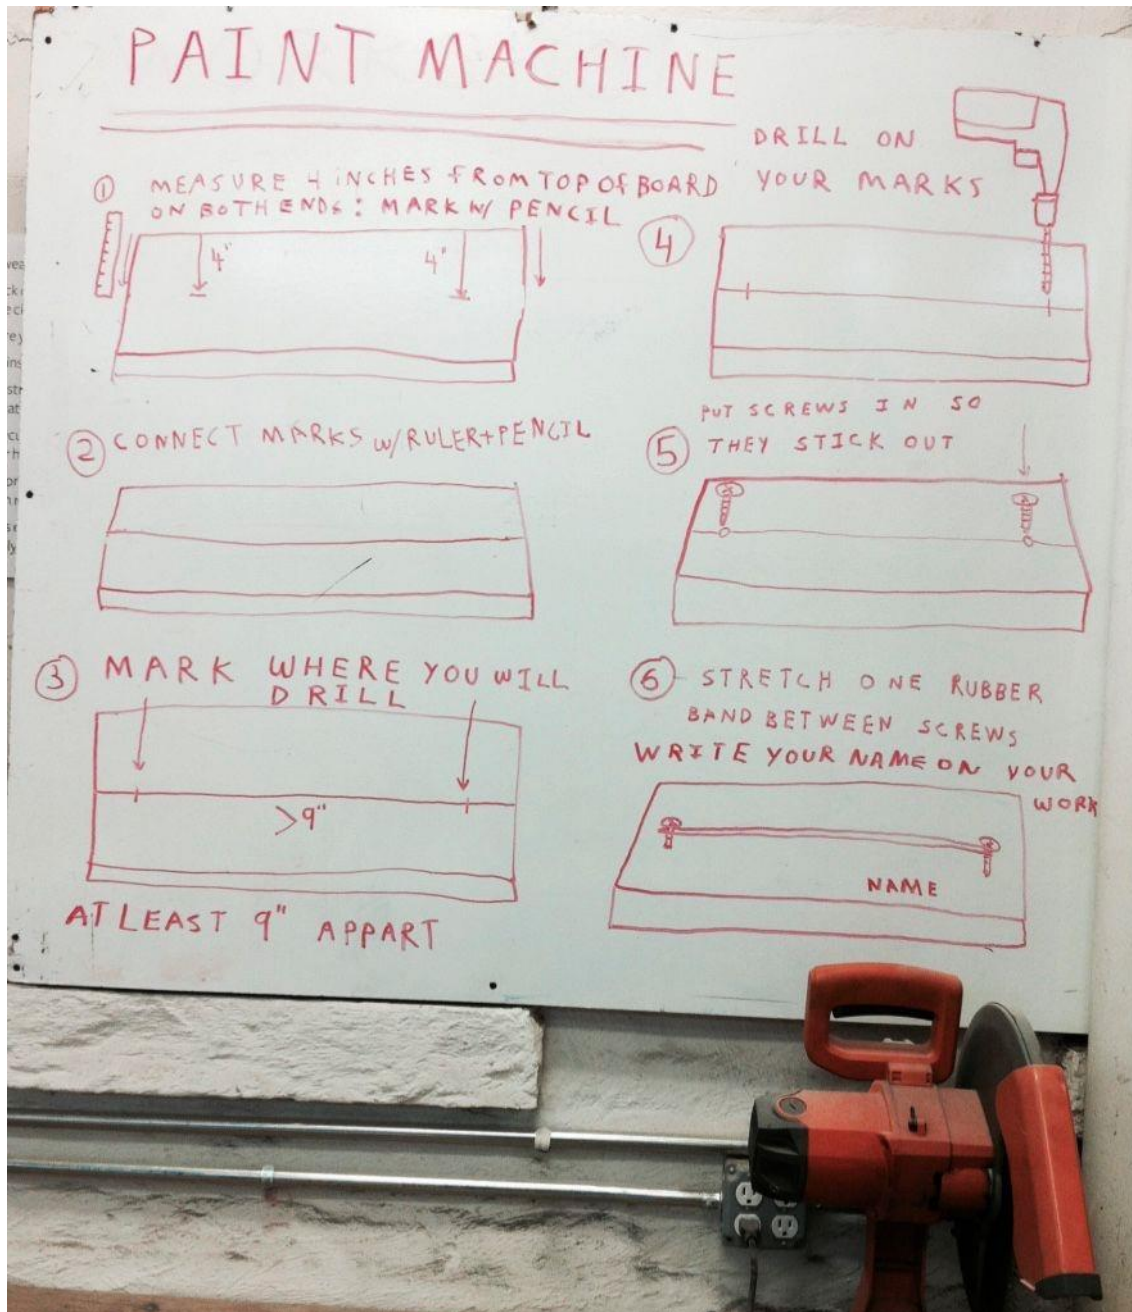 PAINT MACHINE
① MEASURE 4 INCHES FROM TOP OF BOARD
ON BOTH ENDS: MARK W/ PENCIL
4"
4"
② CONNECT MARKS W/RULER+PENCIL
③ MARK WHERE YOU WILL
DRILL
>9"
AT LEAST 9" APPART
DRILL ON
YOUR MARKS
④
PUT SCREWS IN SO
⑤ THEY STICK OUT
⑥ STRETCH ONE RUBBER
BAND BETWEEN SCREWS
WRITE YOUR NAME ON YOUR
WORK
NAME